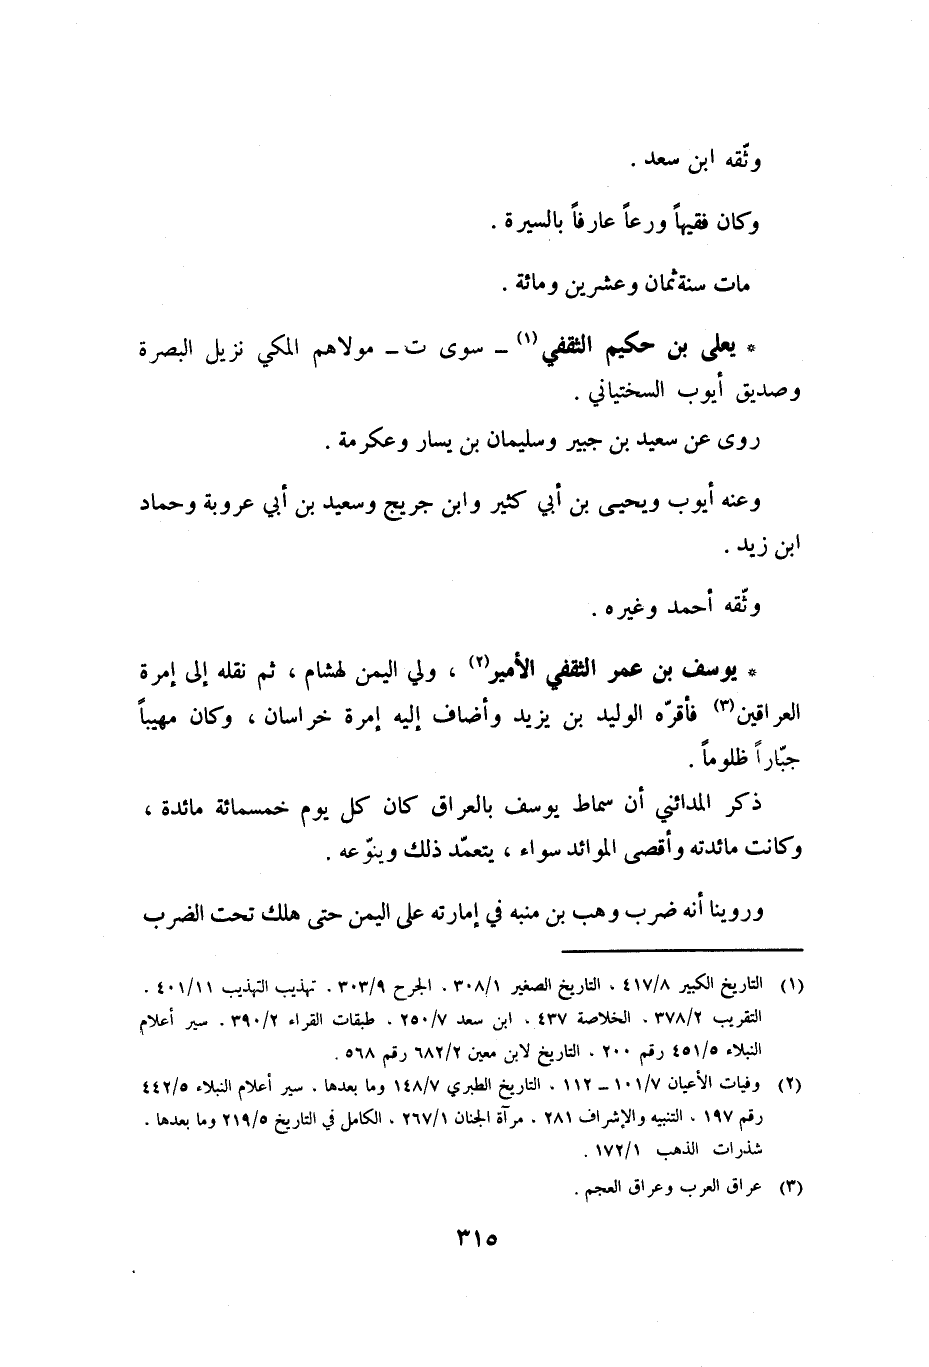 وثّقه ابن سعد .
وكان فقيهاً ورعاً عارفاً بالسيرة .
مات سنة ثمان وعشرين ومائة .
* يعلى بن حكيم الثقفي (١) ـ سوى ت ـ مولاهم المكي نزيل البصرة
وصديق أيوب السختياني .
روى عن سعيد بن جبير وسليمان بن يسار وعكرمة .
وعنه أيوب ويحيى بن أبي كثير وابن جريج وسعيد بن أبي عروبة وحماد
ابن زيد .
وثّقه أحمد وغيره .
* يوسف بن عمر الثقفي الأمير (٢) ، ولي اليمن لهشام ، ثم نقله إلى إمرة
العراقين (٣) فأقرّه الوليد بن يزيد وأضاف إليه إمرة خراسان ، وكان مهيباً
جبّاراً ظلوماً .
ذكر المدائني أن سماط يوسف بالعراق كان كل يوم خمسمائة مائدة ،
وكانت مائدته وأقصى الموائد سواء ، يتعمّد ذلك وينوّعه .
وروينا أنه ضرب وهب بن منبه في إمارته على اليمن حتى هلك تحت الضرب
(١) التاريخ الكبير ٤١٧/٨ . التاريخ الصغير ٣٠٨/١ . الجرح ٣٠٣/٩ . تهذيب التهذيب ٤٠١/١١ .
التقريب ٣٧٨/٢ . الخلاصة ٤٣٧ . ابن سعد ٢٥٠/٧ . طبقات القراء ٣٩٠/٢ . سير أعلام
النبلاء ٤٥١/٥ رقم ٢٠٠ . التاريخ لابن معين ٦٨٢/٢ رقم ٥٦٨ .
(٢) وفيات الأعيان ١٠١/٧ ـ ١١٢ . التاريخ الطبري ١٤٨/٧ وما بعدها . سير أعلام النبلاء ٤٤٢/٥
رقم ١٩٧ . التنبيه والإشراف ٢٨١ . مرآة الجنان ٢٦٧/١ . الكامل في التاريخ ٢١٩/٥ وما بعدها .
شذرات الذهب ١٧٢/١ .
(٣) عراق العرب وعراق العجم .
٣١٥